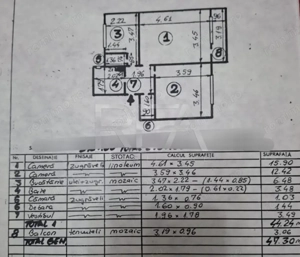 2.22
4.61
96
3
3.47
1
3.45
3.19
1.44
8
1.96
3.59
4
7
2
3.46
1.60
6
NR. DENUMIRE FINISAJE STOTAC CALCUL SUPRAFETE SUPRAFATA
1 Camera zugraveli linoleum 4.61 x 3.45 15.90
2 Camera 3.59 x 3.46 12.42
3 Bucatarie mozaic 3.47 x 2.22 - (1.44 x 0.85) 6.48
4 Baie 2.02 x 1.79 - (0.61 x 0.22) 3.48
5 Camara zugraveli 1.36 x .76 1.03
6 Debara 1.60 x 0.90 1.44
7 Vestibul 1.96 x 1.78 3.49
TOTAL 1 44.24
8 Balcon tencuieli mozaic 3.19 x 0.96 3.06
TOTAL GEN. 47.30